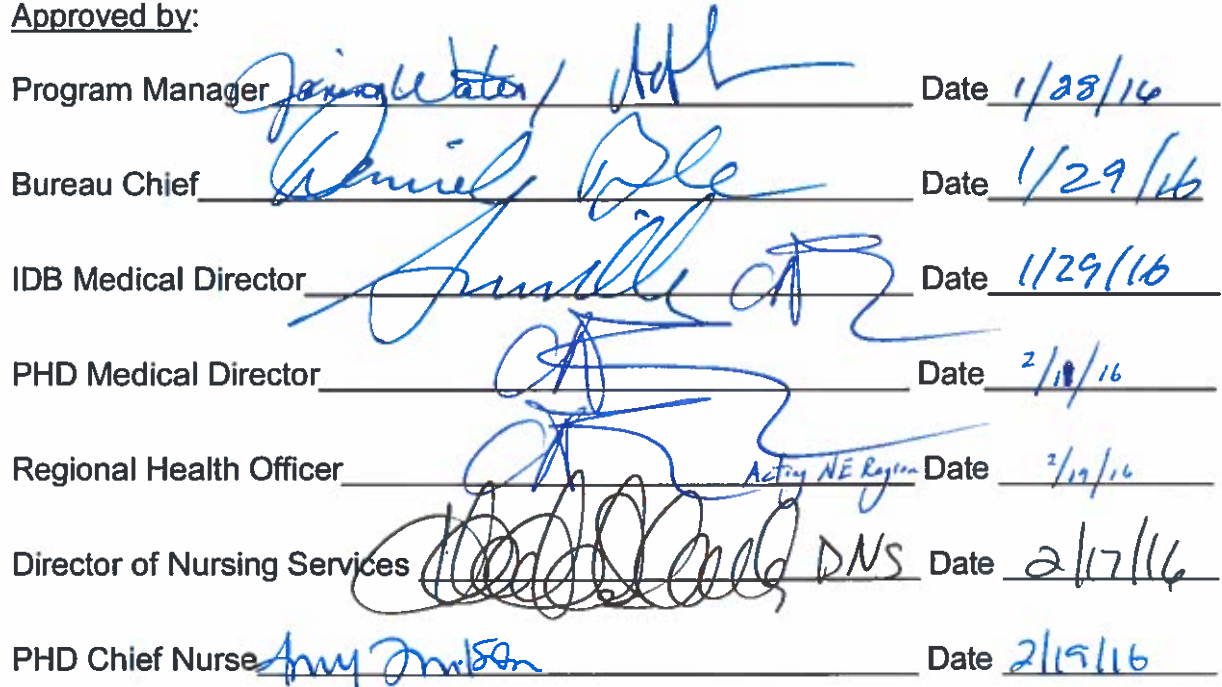 Approved by:
Program Manager Date 1/28/16
Bureau Chief Date 1/29/16
IDB Medical Director Date 1/29/16
PHD Medical Director Date 2/19/16
Regional Health Officer Acting NE Region Date 2/19/16
Director of Nursing Services DNS Date 2/17/16
PHD Chief Nurse Amy Date 2/19/16